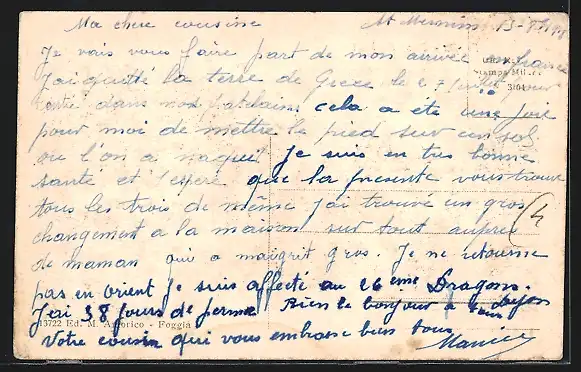 Ma chere cousine
St 13-8
Je vais vous faire part de mon arrivée en france
J'ai quitté la terre de Grece le 27 juillet pour
dans nos cela a ete une joie
pour moi de mettre le pied sur un sol
ou l'on a naquit Je suis en tres bonne
santé et j'espere que la presente vous trouve
tous les trois de même j'ai trouvé un gros
changement a la maison sur tout aupres
de maman qui a maigrit gros. Je ne retourne
pas en orient je suis affecté au 26 eme Dragons.
J'ai 38 jours de perme Bien le bonjour a tous
Votre cousin qui vous embrasse bien tous
Stampa Milano
3101
(4
13722 Ed. M. Amorico - Foggia